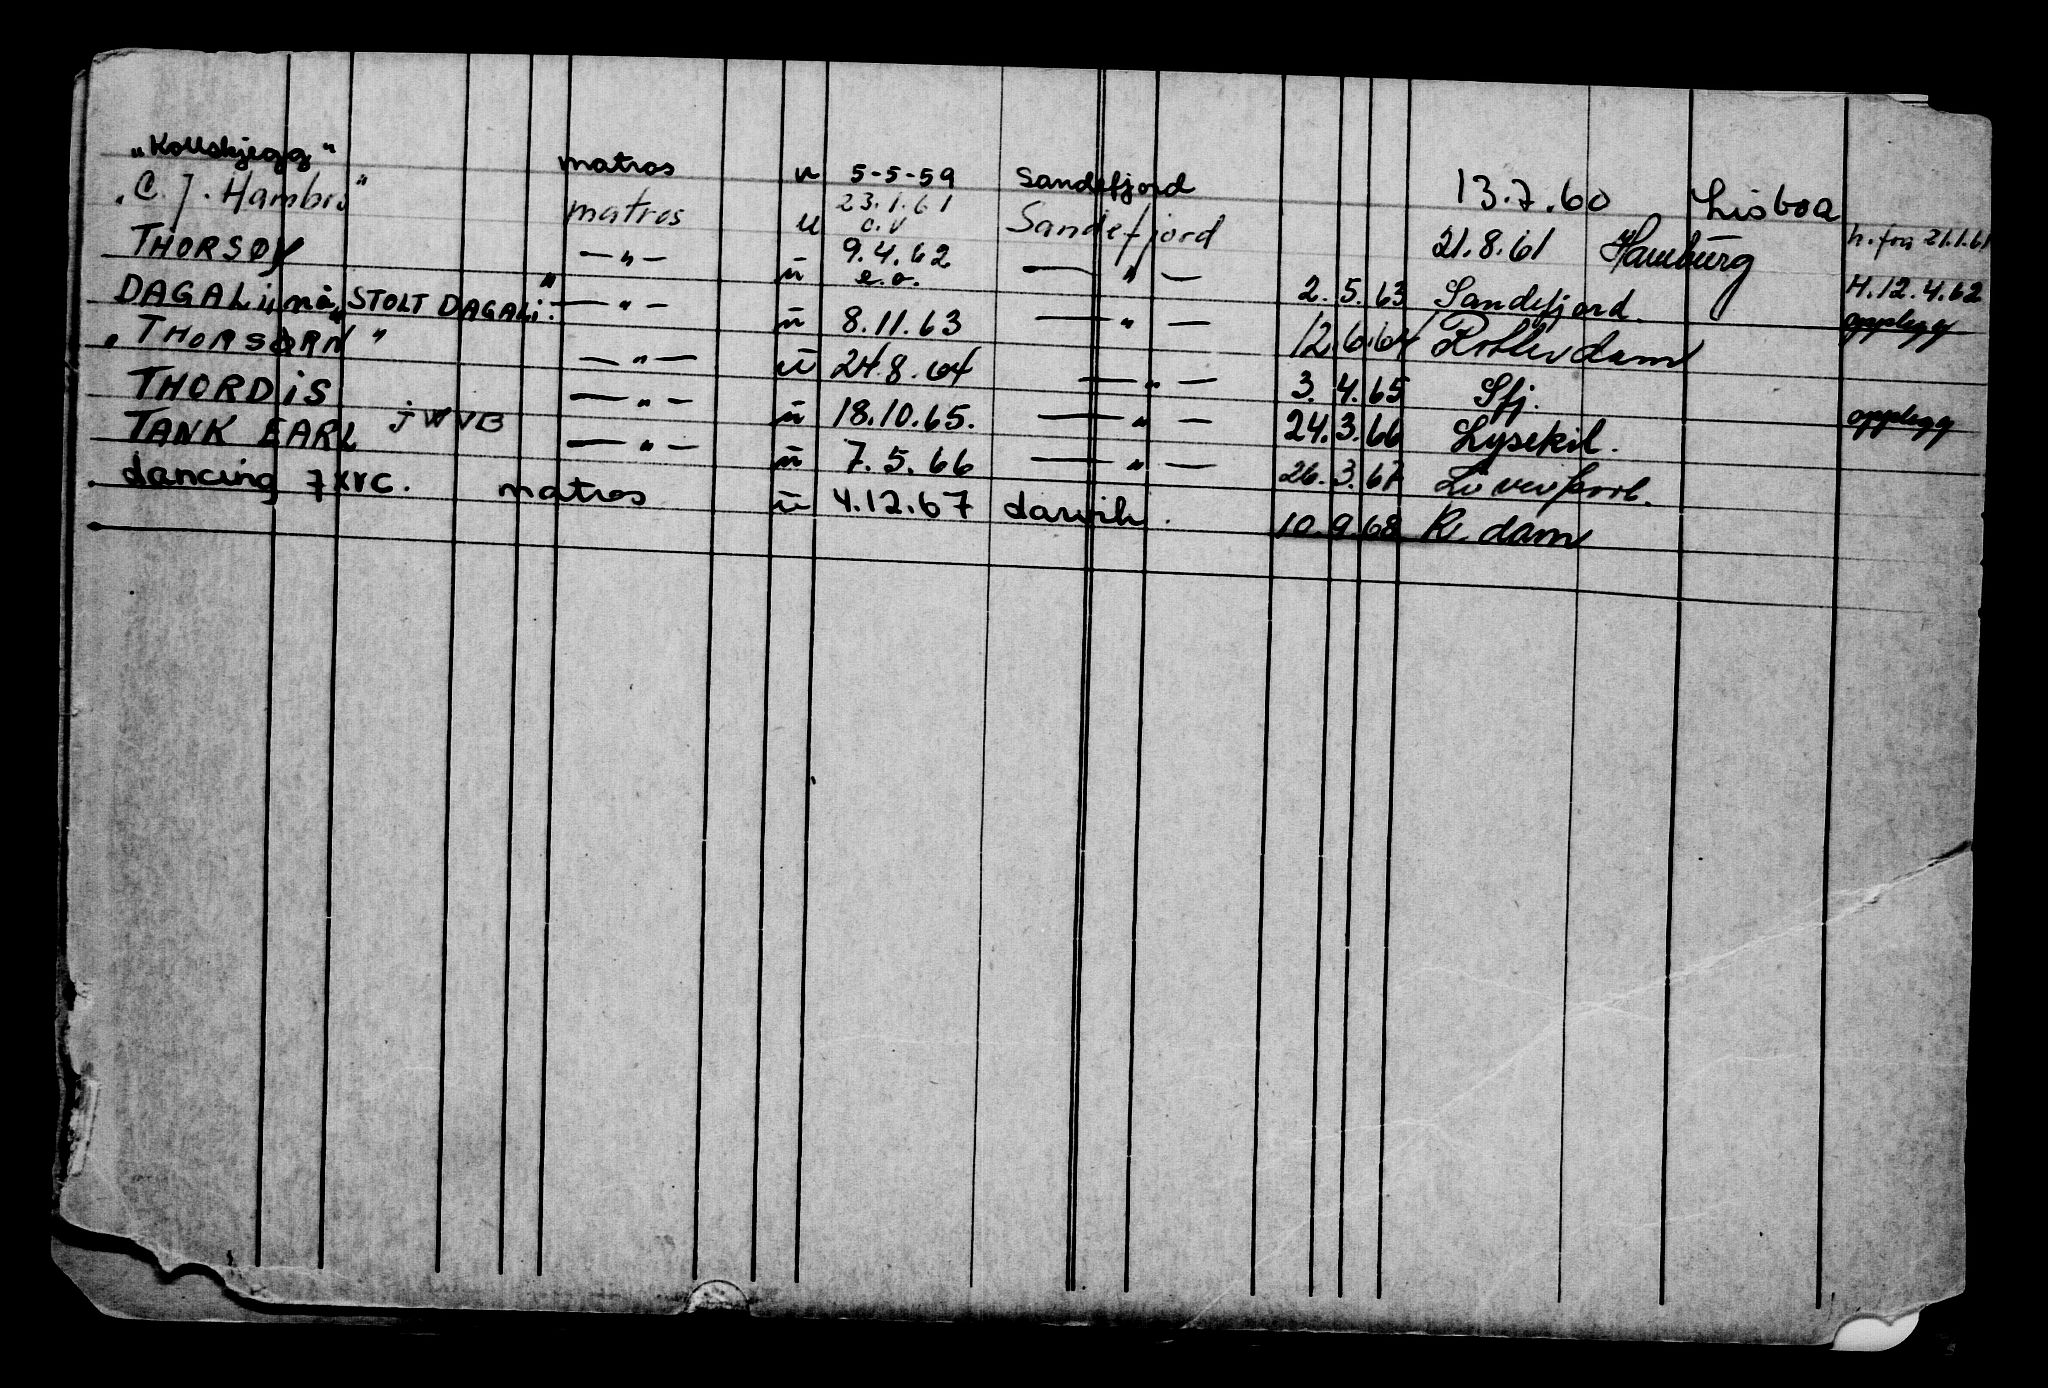 "Kollbjegg" matros u 5-5-59 Sandefjord 13.7.60 Lisboa
"C. J. Hambro" matros u 23.1.61 o.v Sandefjord 21.8.61 Hamburg h. fra 21.1.61
THORSØY — " — ū 9.4.62 e.o. — " — 2.5.63 Sandefjord. H.12.4.62
DAGALI, nå "STOLT DAGALI" — " — ū 8.11.63 — " — 12.6.64 Rotterdam opplegg
"THORSØRN" — " — ū 24.8.64 — " — 3.4.65 Sfj.
THORDIS — " — ū 18.10.65. — " — 24.3.66 Lysekil. opplegg
TANK EARL JWVB — " — ū 7.5.66 — " — 26.3.67 Liverpool.
dancing 7XVC. matros ū 4.12.67 10.9.68 R. dam